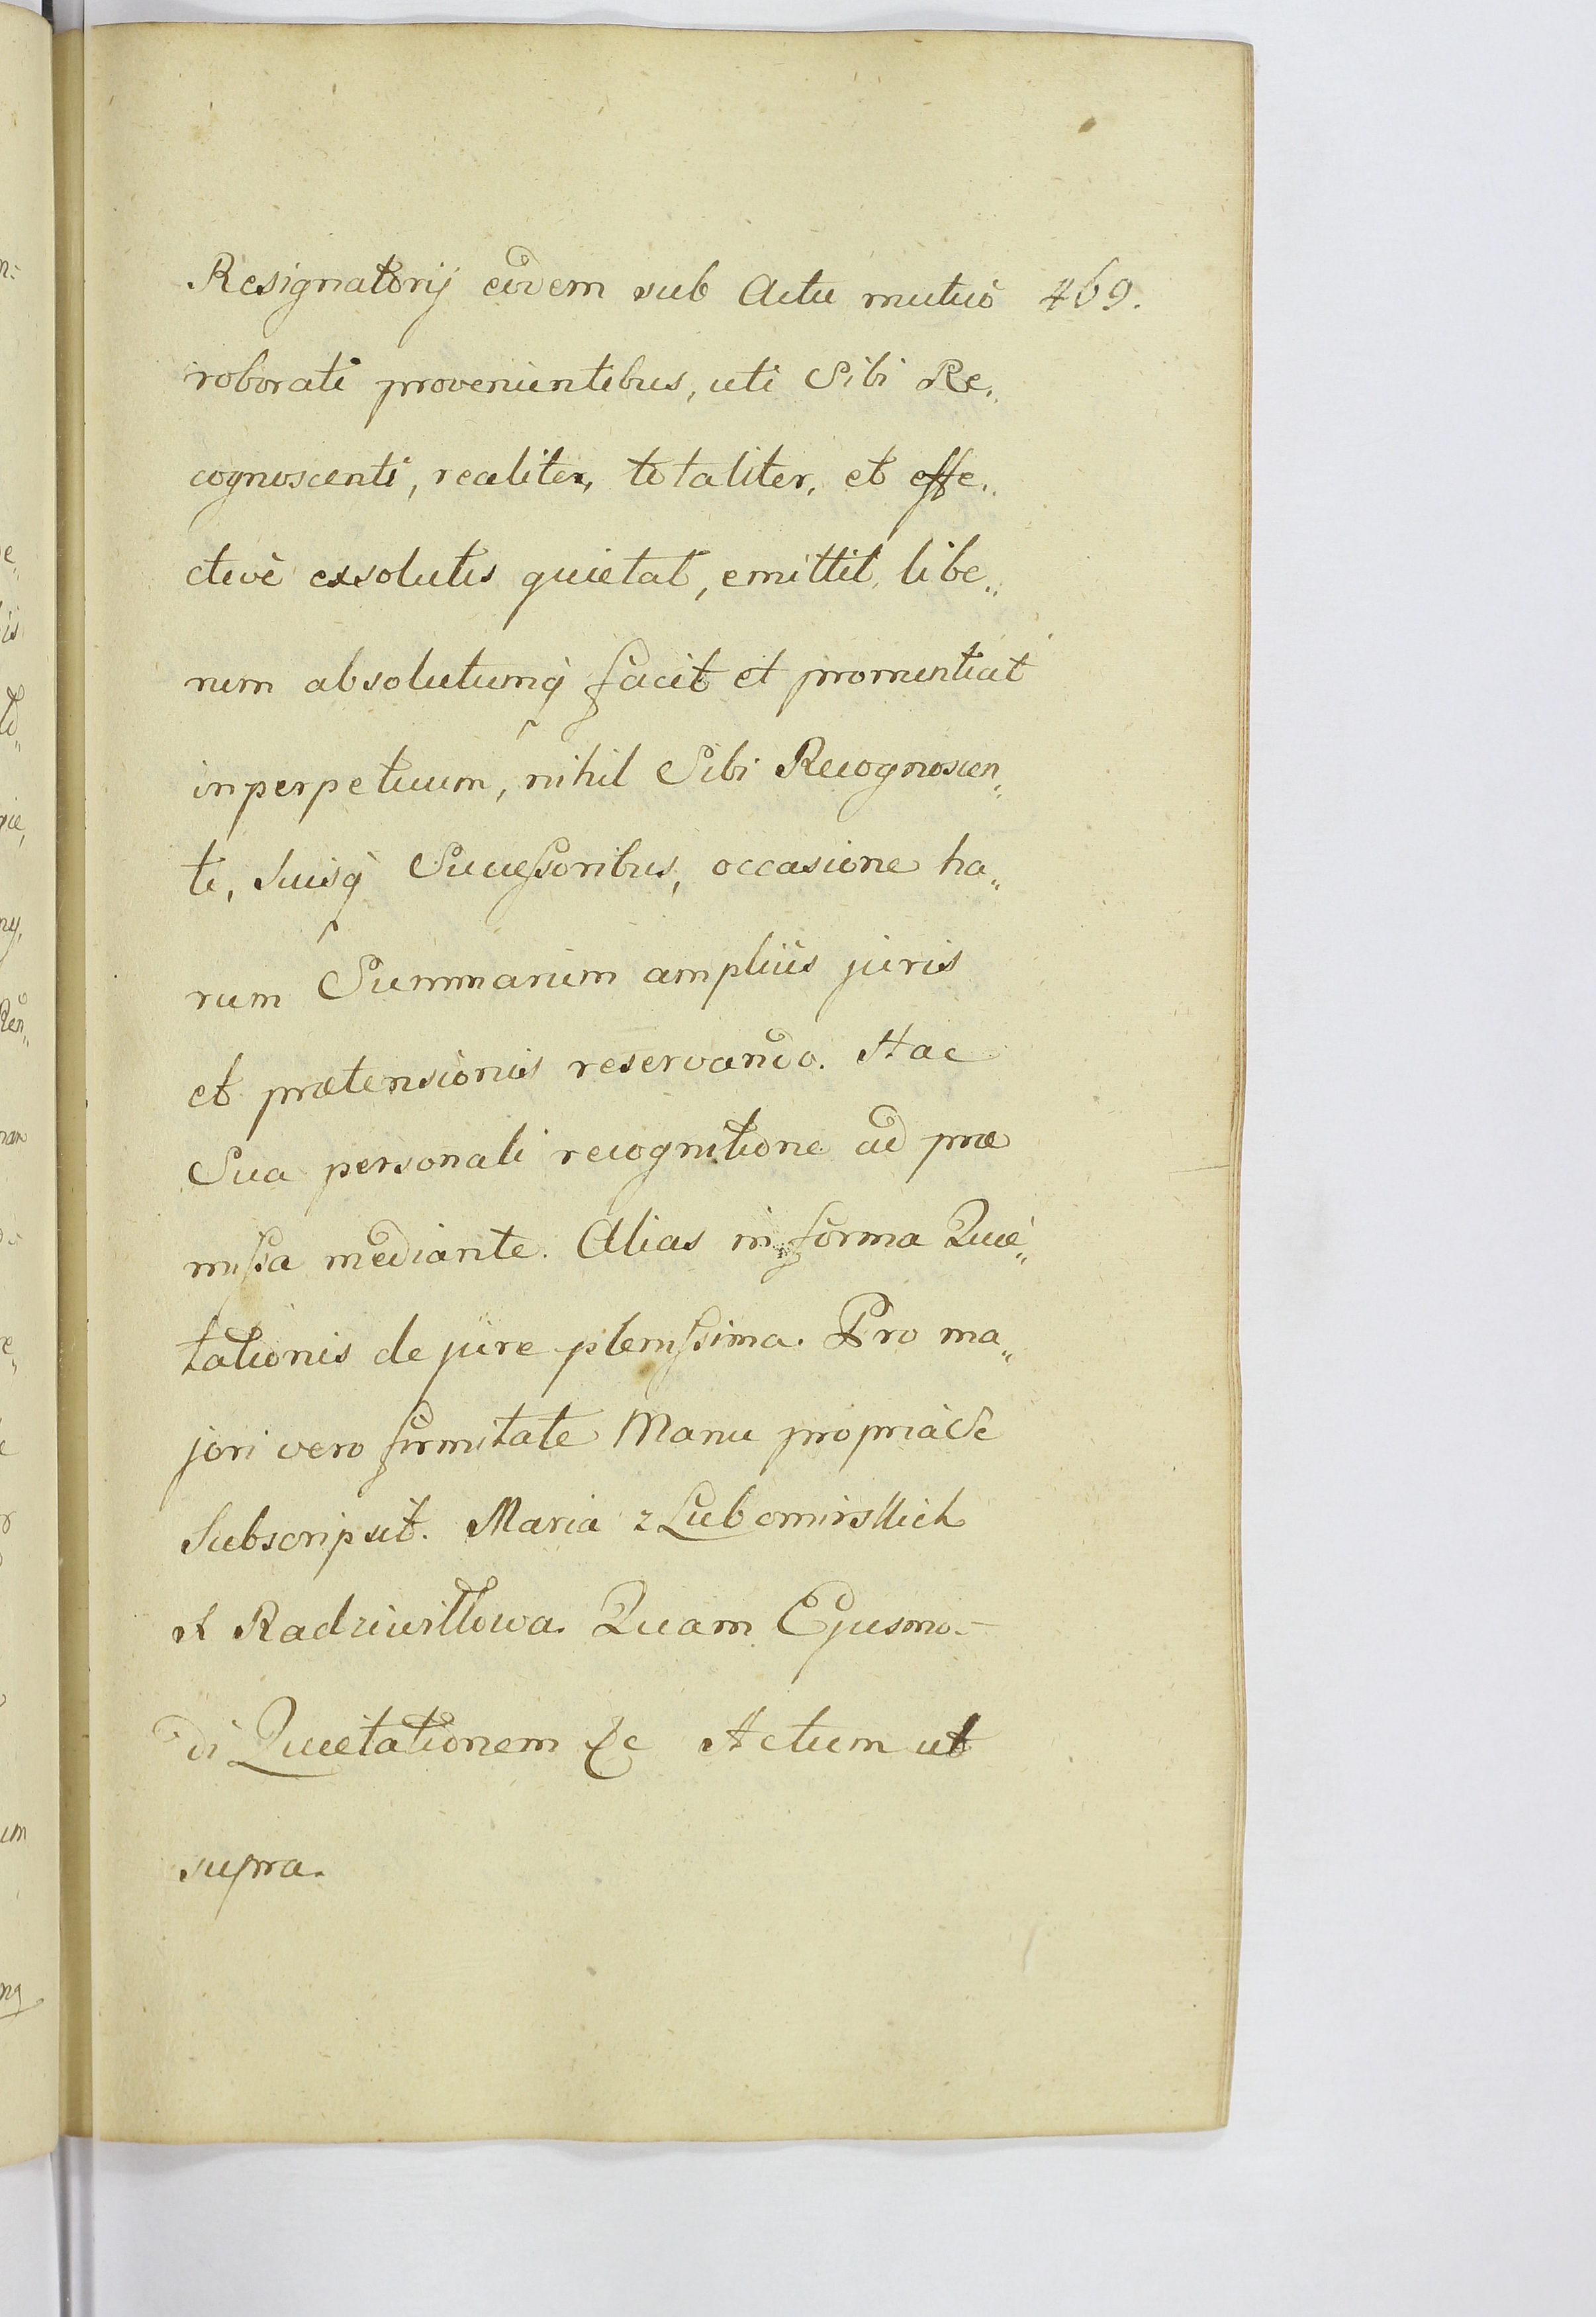 Resignatorij eodem sub Actu mutuò 469.
roborati provenientibus, uti Sibi Re„
cognoscenti, realiter, totaliter, et effe„
ctivè exsolutis quietat, emittit, libe„
rum absolutumq̃ facit et pronuntiat
inperpetuum, nihil Sibi Recognoscen„
ti, Suisq̃ Succeſsoribus, occasione ha„
rum Summarum ampliùs juris
et prætensionis reservando. Hac
Sua personali recognitione ad præ
miſsa mediante. Alias in forma Quie„
tationis de jure pleniſsima. Pro ma„
jori vero firmitate Manu propria Se
Subscripsit. Maria z Lubomirskich
X Radziwiłłowa. Quam Ejusmo-
di Quietationem &c Actum ut
supra.